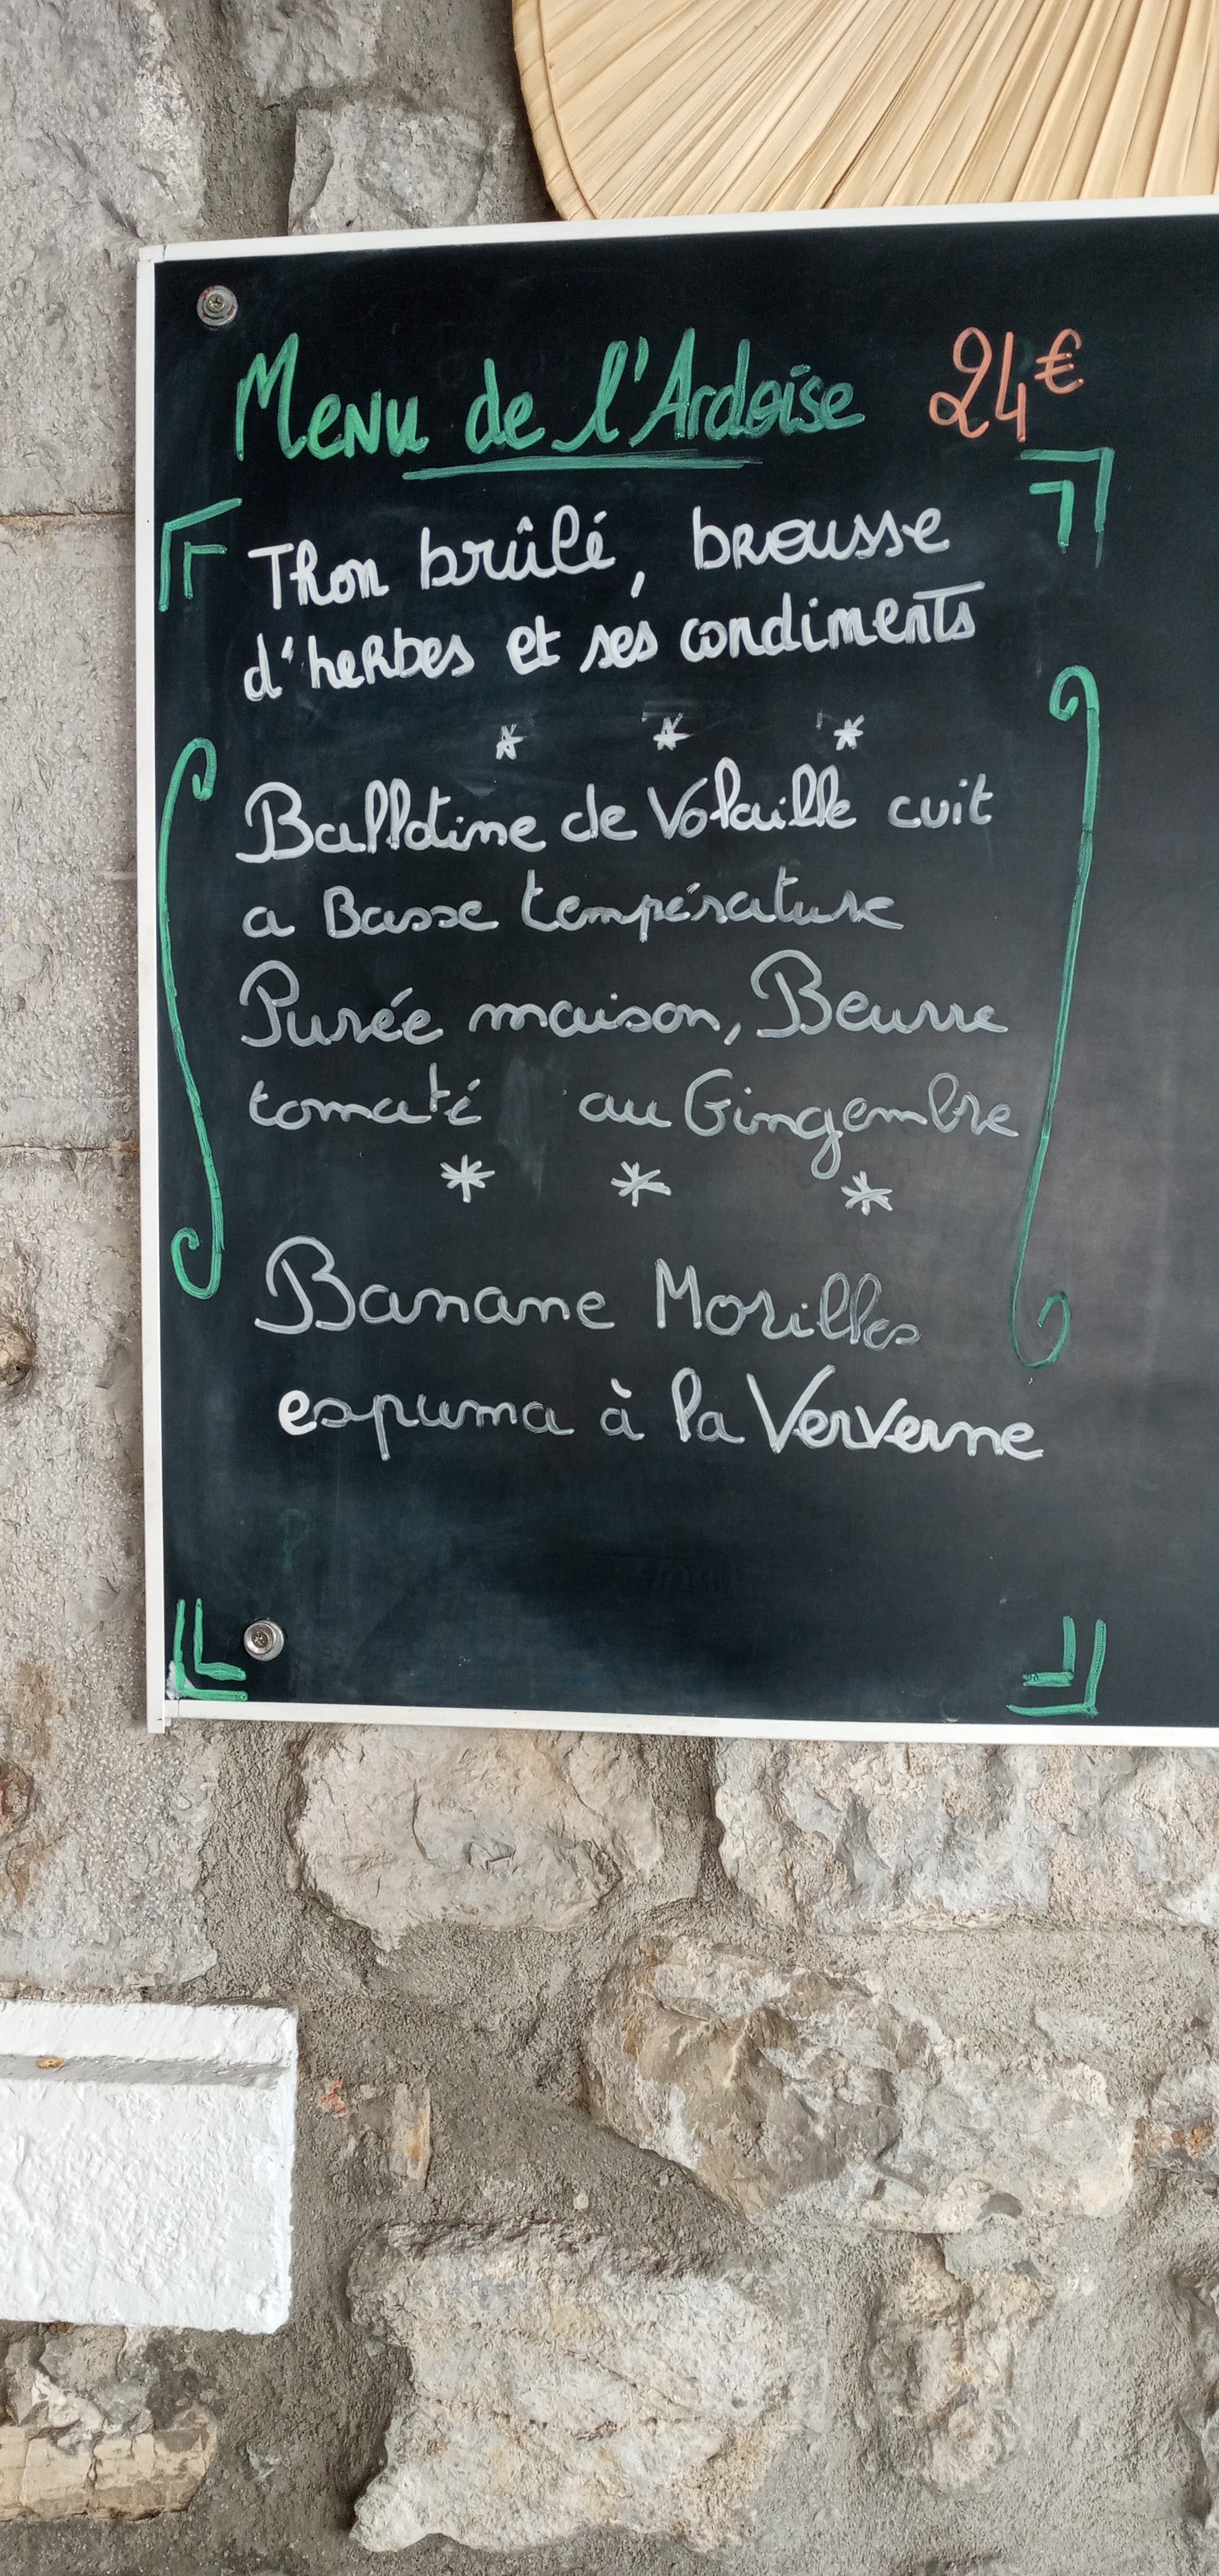 Menu de l'Ardoise 24€
Thon brûlé, brousse
d'herbes et ses condiments
* * *
Ballotine de Volaille cuit
a Basse température
Purée maison, Beurre
tomaté au Gingembre
* * *
Banane Morilles
espuma à la Ververne